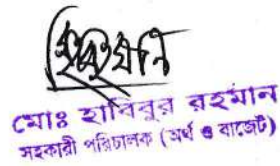 মোঃ হাবিবুর রহমান
সহকারী পরিচালক (অর্থ ও বাজেট)